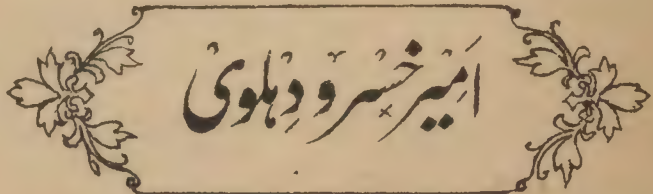 اَمِیر خسرو دِہلوی